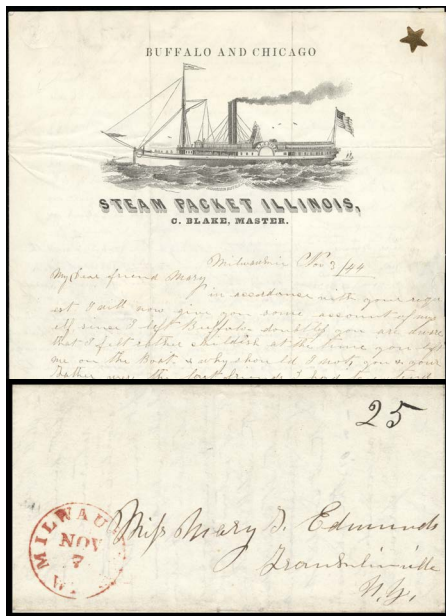 BUFFALO AND CHICAGO
STEAM PACKET ILLINOIS,
C. BLAKE, MASTER.
Milwaukie Nov 3/44
My Dear friend Mary
in accordance with your requ
est I will now give you some account of mys
elf since I left Buffalo doubtless you are aware
that I felt rather childish at the time you left
me on the Boat. & why should I not, you & your
25
MILWAUK
NOV
7
W.T.
Miss Mary D. Edmunds
N.Y.